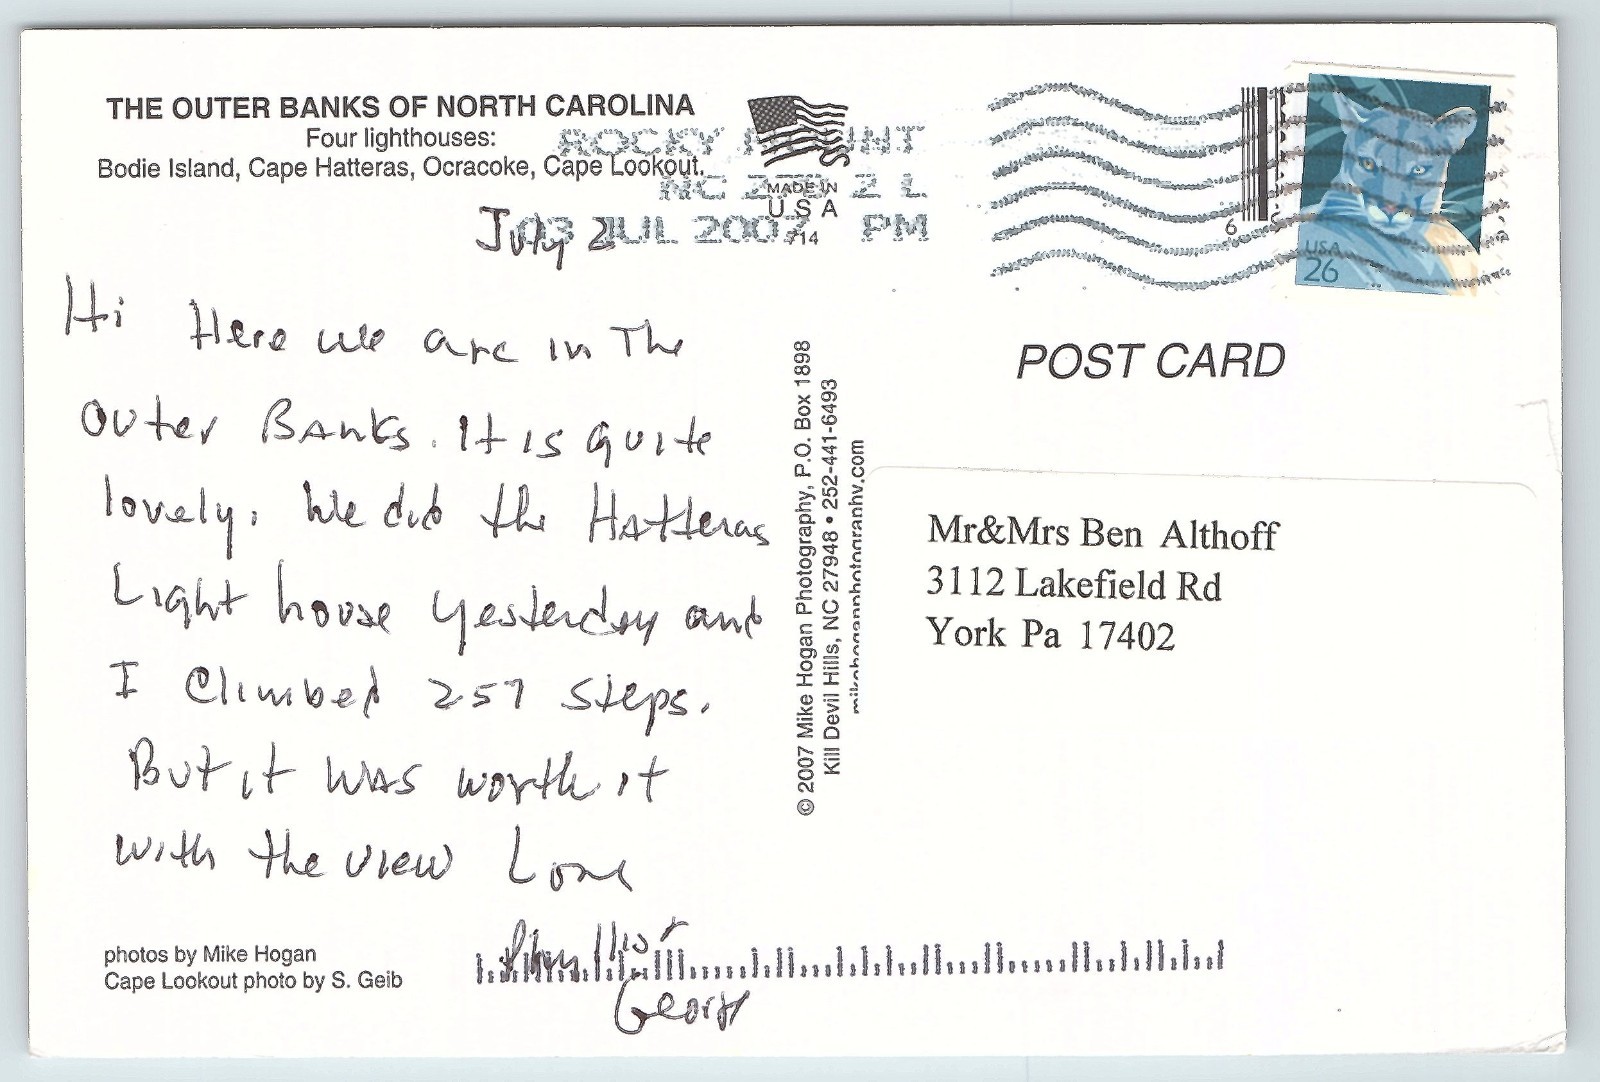 THE OUTER BANKS OF NORTH CAROLINA
Four lighthouses:
Bodie Island, Cape Hatteras, Ocracoke, Cape Lookout.
MADE IN
USA
714
ROCKY MOUNT
NC 2 L
03 JUL 2007 PM
6
USA
26
July 2
Hi Here we are in The
Outer Banks. It is quite
lovely. We did the Hatteras
Light house yesterday and
I Climbed 257 steps.
But it was worth it
with the view Love
Phyllis +
George
photos by Mike Hogan
Cape Lookout photo by S. Geib
© 2007 Mike Hogan Photography, P.O. Box 1898
Kill Devil Hills, NC 27948 • 252-441-6493
POST CARD
Mr&Mrs Ben Althoff
3112 Lakefield Rd
York Pa 17402